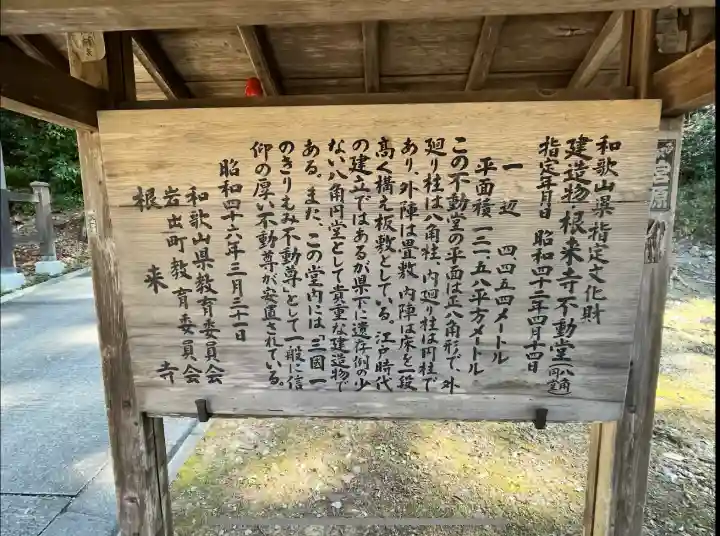 和歌山県指定文化財
建造物 根来寺不動堂(八角円堂)
指定年月日 昭和四十二年四月十四日
一辺 四四五四メートル
平面積 一二一五八平方メートル
この不動堂の平面は正八角形で、外
廻り柱は八角柱、内廻り柱は円柱で
あり、外陣は畳敷、内陣は床を一段
高く構え板敷としている。江戸時代
の建立ではあるが県下に遺存例の少
ない八角円堂として貴重な建造物で
ある。また、この堂内には「三国一
のきりもみ不動尊」として一般に信
仰の厚い不動尊が安置されている。
昭和四十六年三月三十一日
和歌山県教育委員会
岩出町教育委員会
根来寺